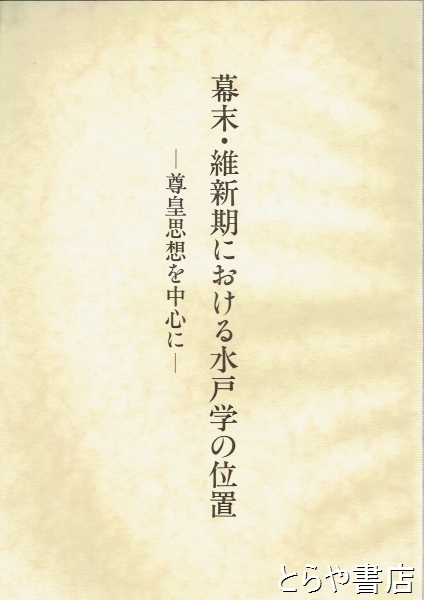 幕末・維新期における水戸学の位置
―尊皇思想を中心に―
とらや書店